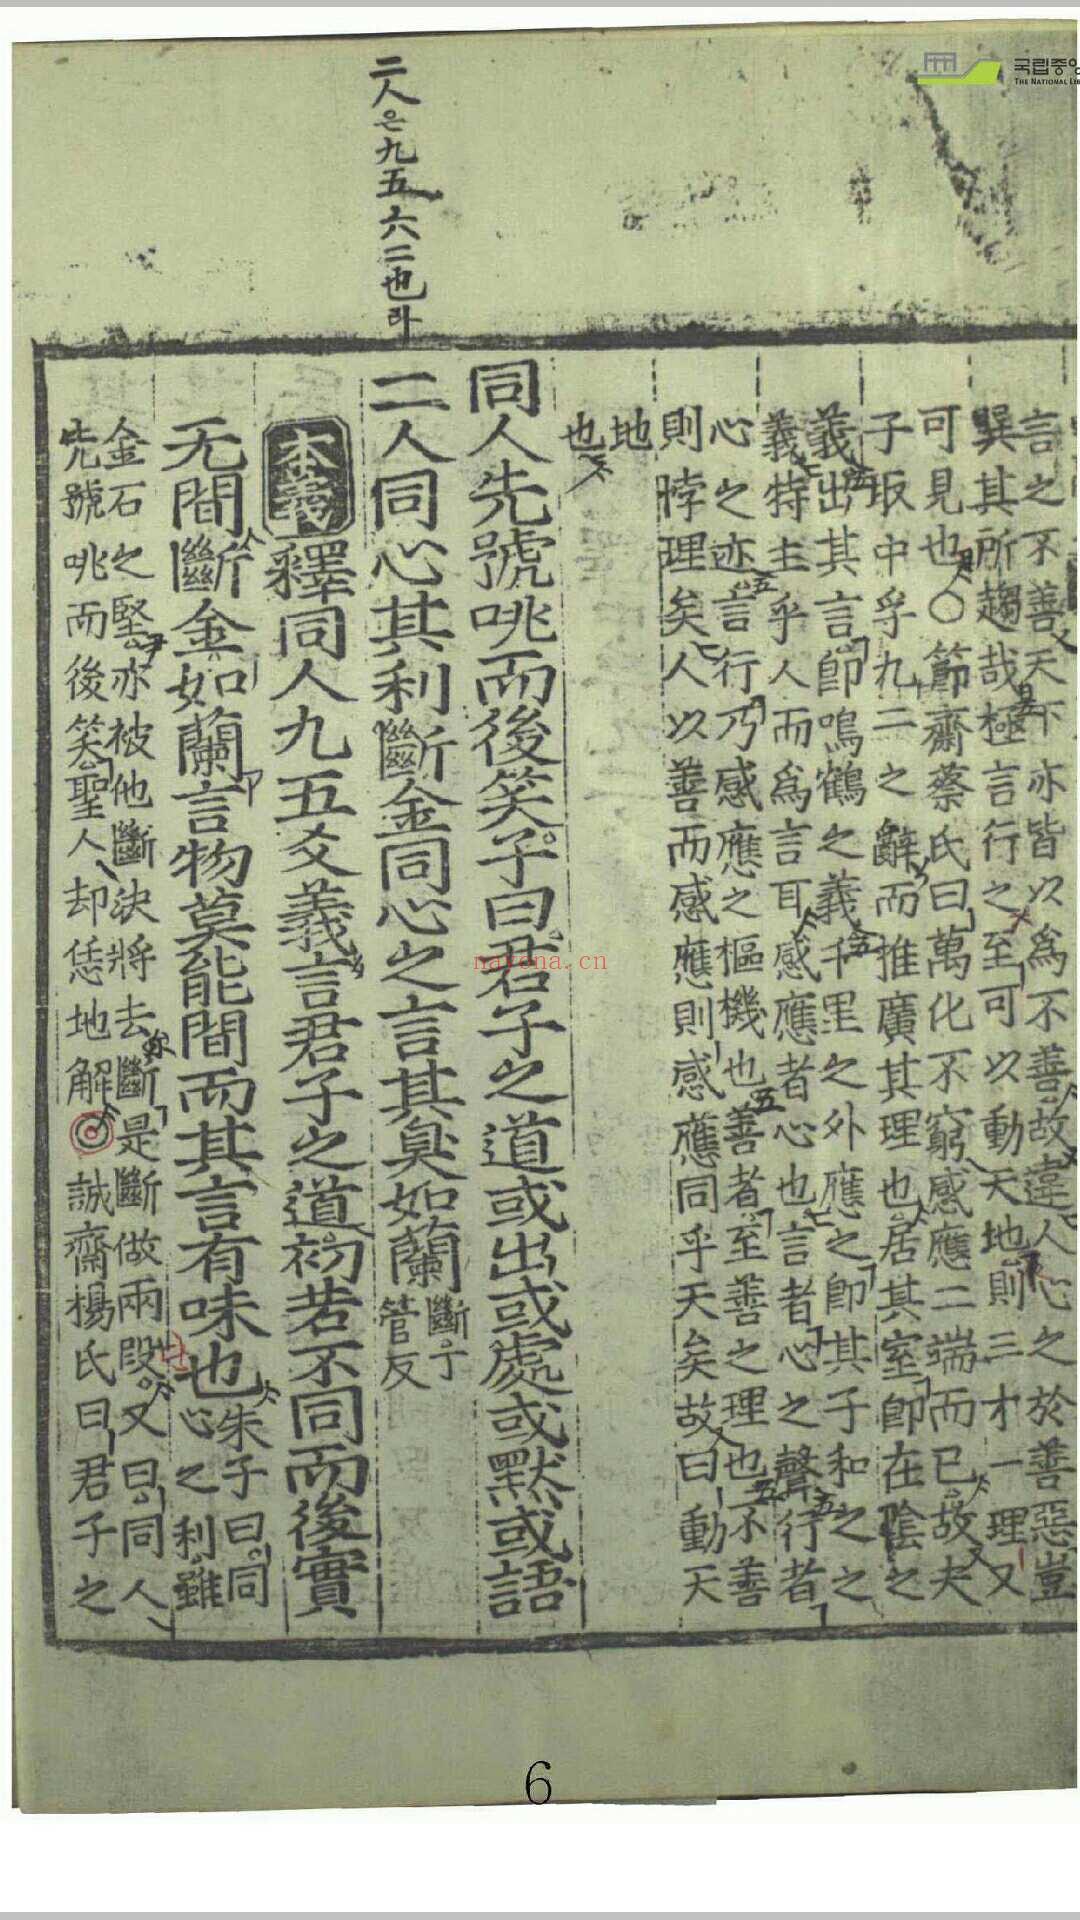 국립중앙
THE NATIONAL LIB
二人은九五六二也라
言之不善天下亦皆以為不善故違人心之於善惡豈
巽其所趨哉極言行之至可以動天地則三才一理又
可見也○節齋蔡氏曰萬化不窮感應二端而已故夫
子取中孚九二之辭而推廣其理也居其室即在陰之
義出其言即鳴鶴之義千里之外應之即其子和之之
義特主乎人而為言耳感應者心也言者心之聲行者
心之迹言行乃感應之樞機也善者至善之理也不善
則悖理矣人以善而感應則感應同乎天矣故曰動天
地
也
同人先號咷而後笑子曰君子之道或出或處或默或語
二人同心其利斷金同心之言其臭如蘭
斷丁
管反
本義釋同人九五爻義言君子之道初若不同而後實
无間斷金如蘭言物莫能間而其言有味也
朱子曰同
心之利雖
金石之堅亦被他斷決將去斷是斷做兩段又曰同人
先號咷而後笑聖人却恁地解◎誠齋楊氏曰君子之
nayona.cn
6